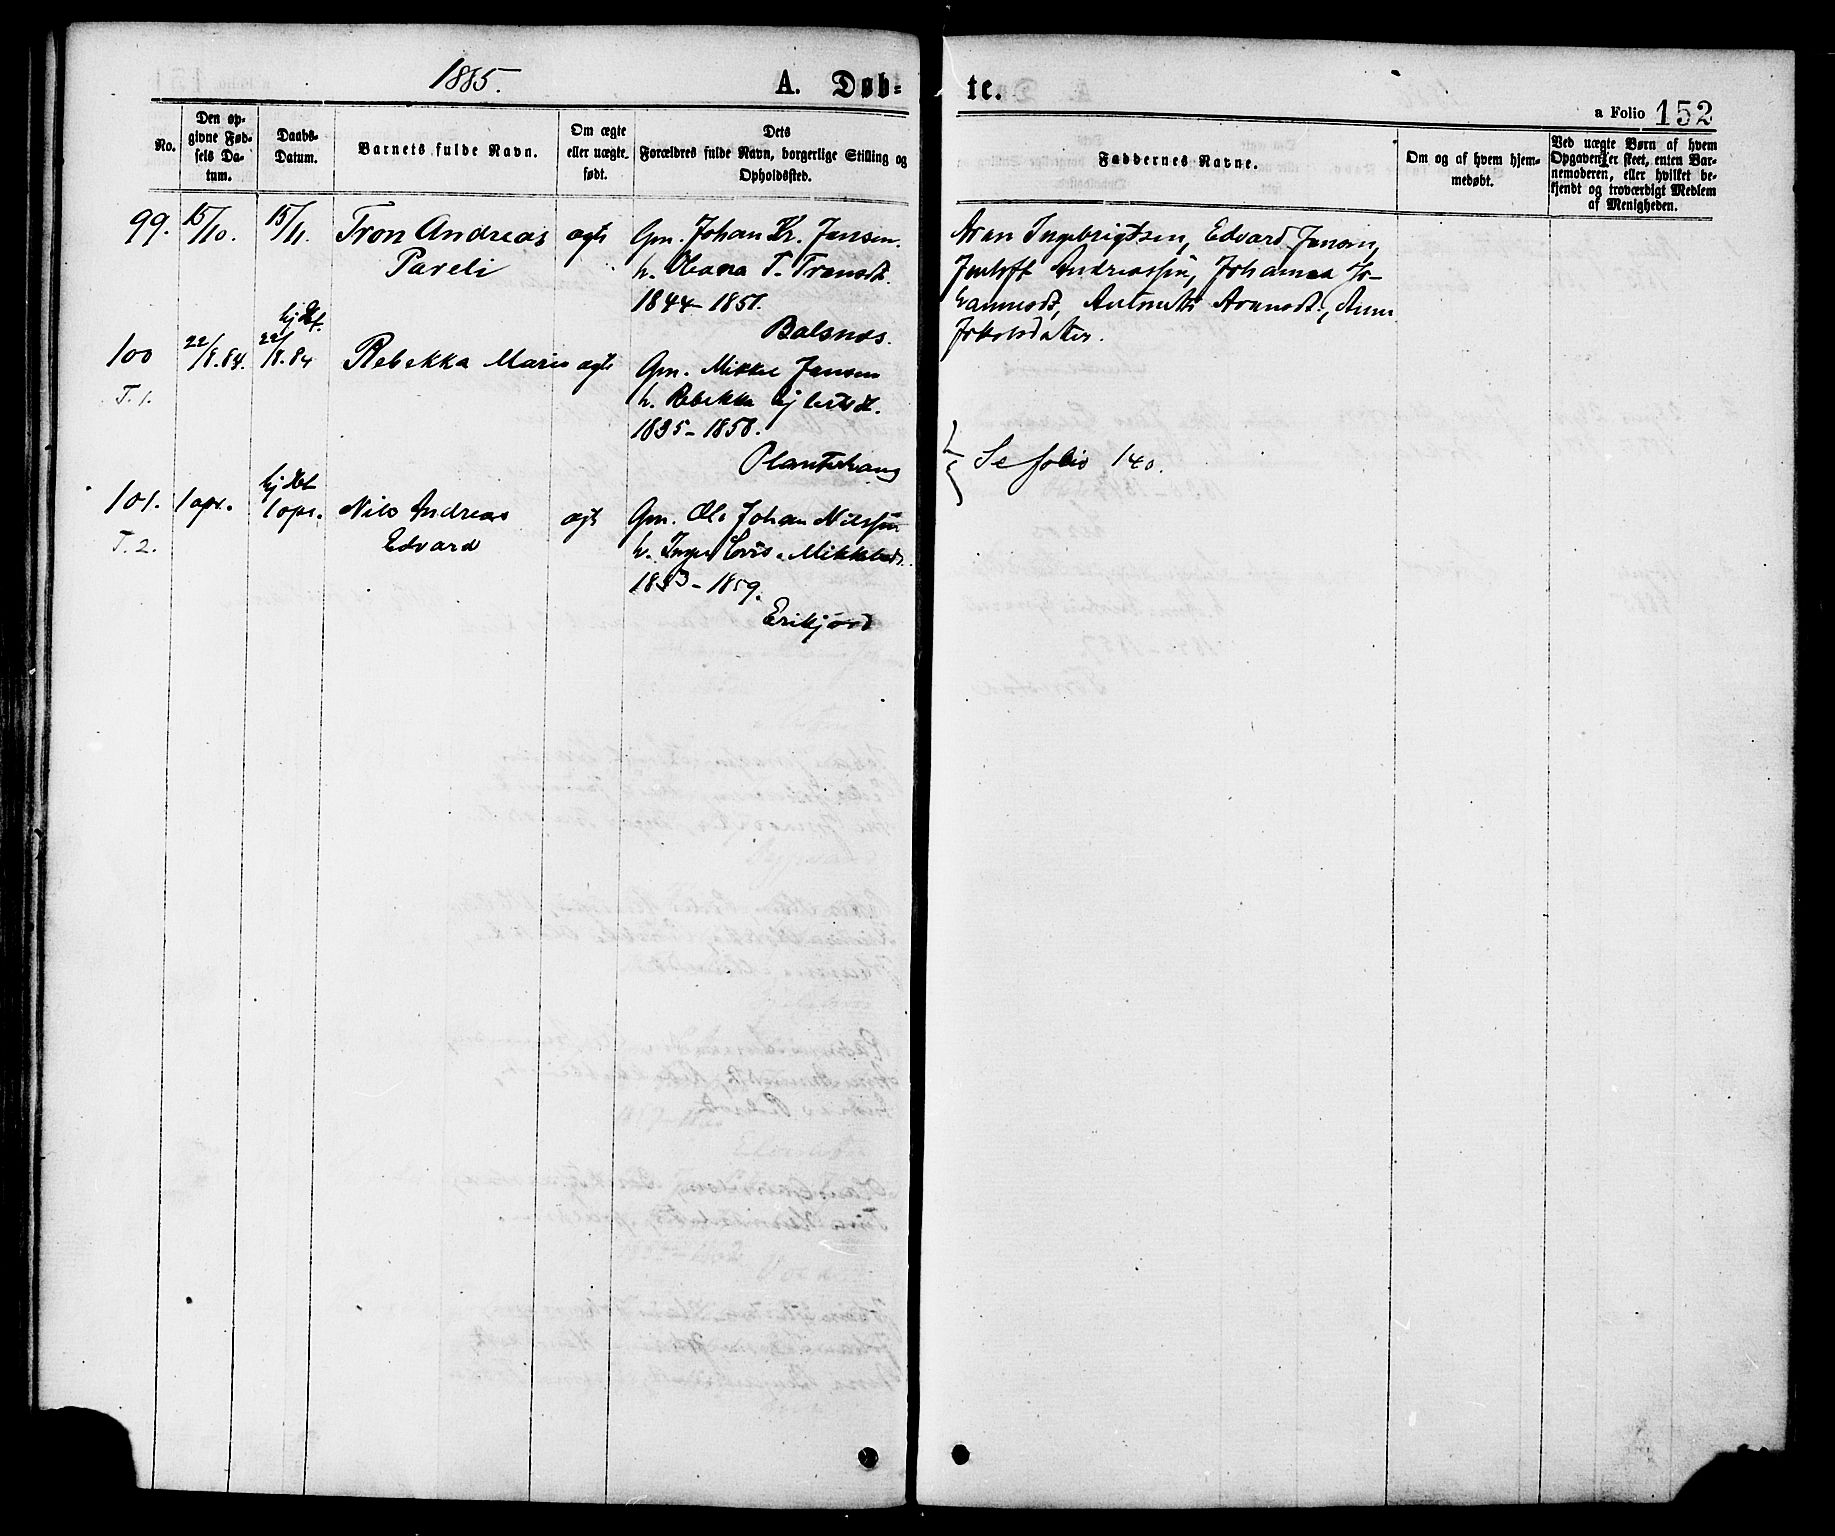 1885.
A. Døb-
te.
a Folio 152
No.
Den op-
givne Fød-
sels Da-
tum.
Daabs-
Datum.
Barnets fulde Navn.
Om ægte
eller uægte
født.
Dets
Forældres fulde Navn, borgerlige Stilling og
Opholdssted.
Faddernes Navne.
Om og af hvem hjem-
medøbt.
Ved uægte Børn af hvem
Opgaven er skeet, enten Bar-
nemoderen, eller hvilket be-
kjendt og troværdigt Medlem
af Menigheden.
99. 15/10. 15/11. Tron Andreas ægte Gm. Johan Kr. Jensen.
Pareli h. T. Tronsdt.
1844-1851.
Balsnes.
Aron Ingebrigtsen, Edvard Jensen,
Andreassen, Johanna Jo-
hannesdt., Aronsdt., Anne
Jakobsdatter.
hj. dbt.
100 22/8.84. 22/8.84 Rebekka Marie ægte Gm. Mikkel Jensen
T. 1. h. Rebekka
1835-1858.
Se folio 140.
hj. dbt
101. 1 apr. 1 apr. Nils Andreas ægte Gm. Ole Johan Nilssen
T. 2. Edvard h. Inger Mikkelsdt.
1853-1859.
Erikjord